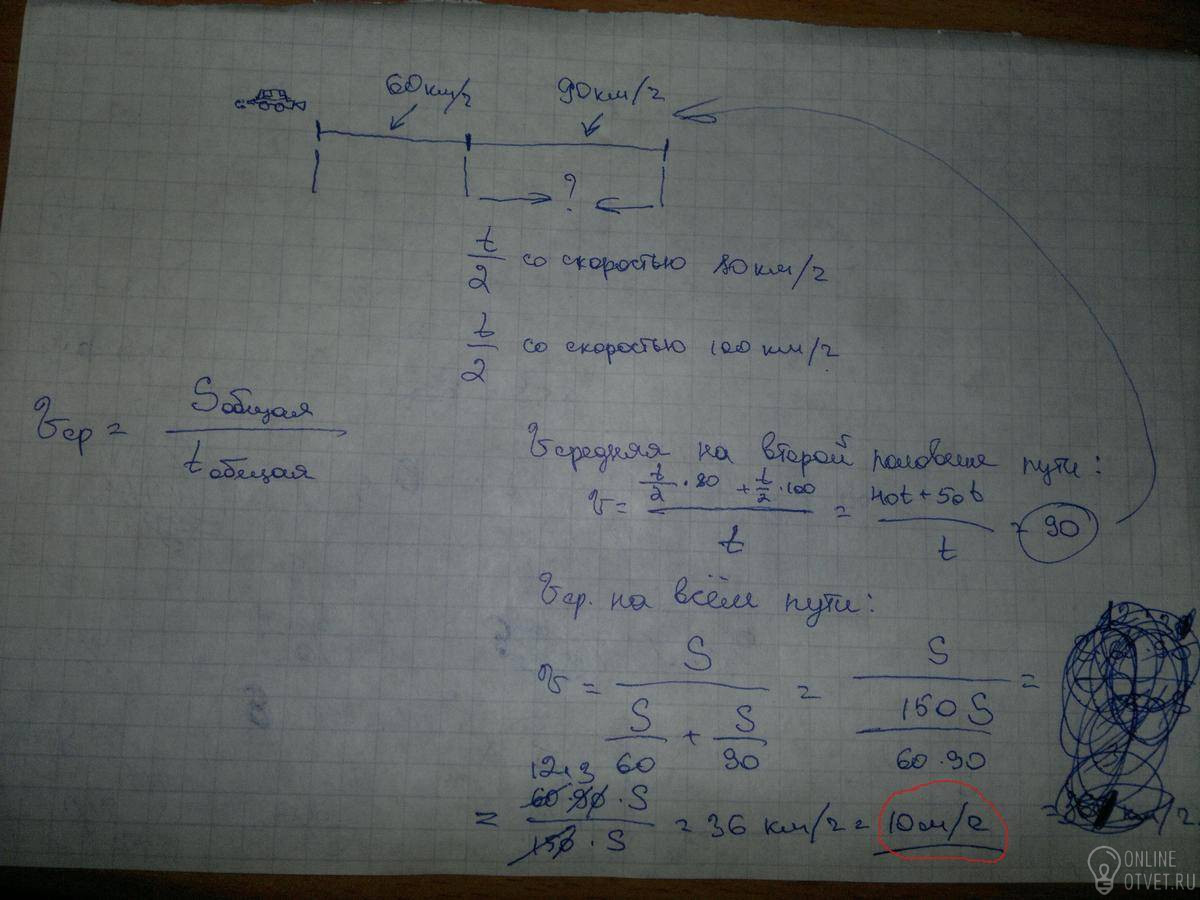 60км/ч 90км/ч
?
t/2 со скоростью 80км/ч
t/2 со скоростью 100 км/ч
Vср = Sобщая / tобщая
Vсредняя на второй половине пути:
V = (t/2 · 80 + t/2 · 100) / t = (40t + 50t) / t = 90
Vср. на всём пути:
V = S / (S/60 + S/90) = S / (150 S / 60·90) =
12·3
= 60·90·S / 150·S = 36 км/ч = 10м/с = км/ч
ONLINE
OTVET.RU